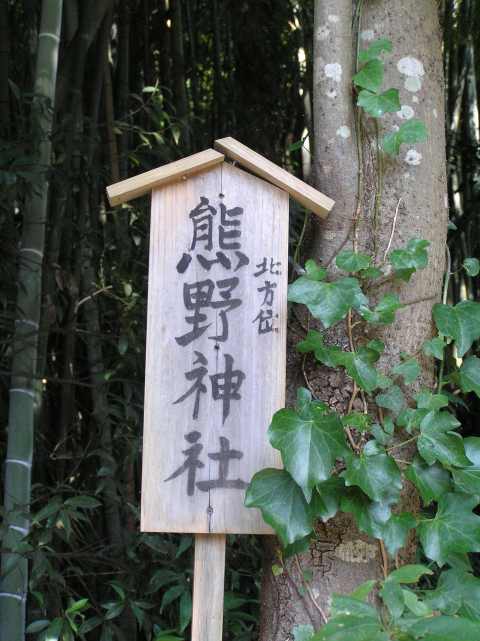 北方位
熊野神社